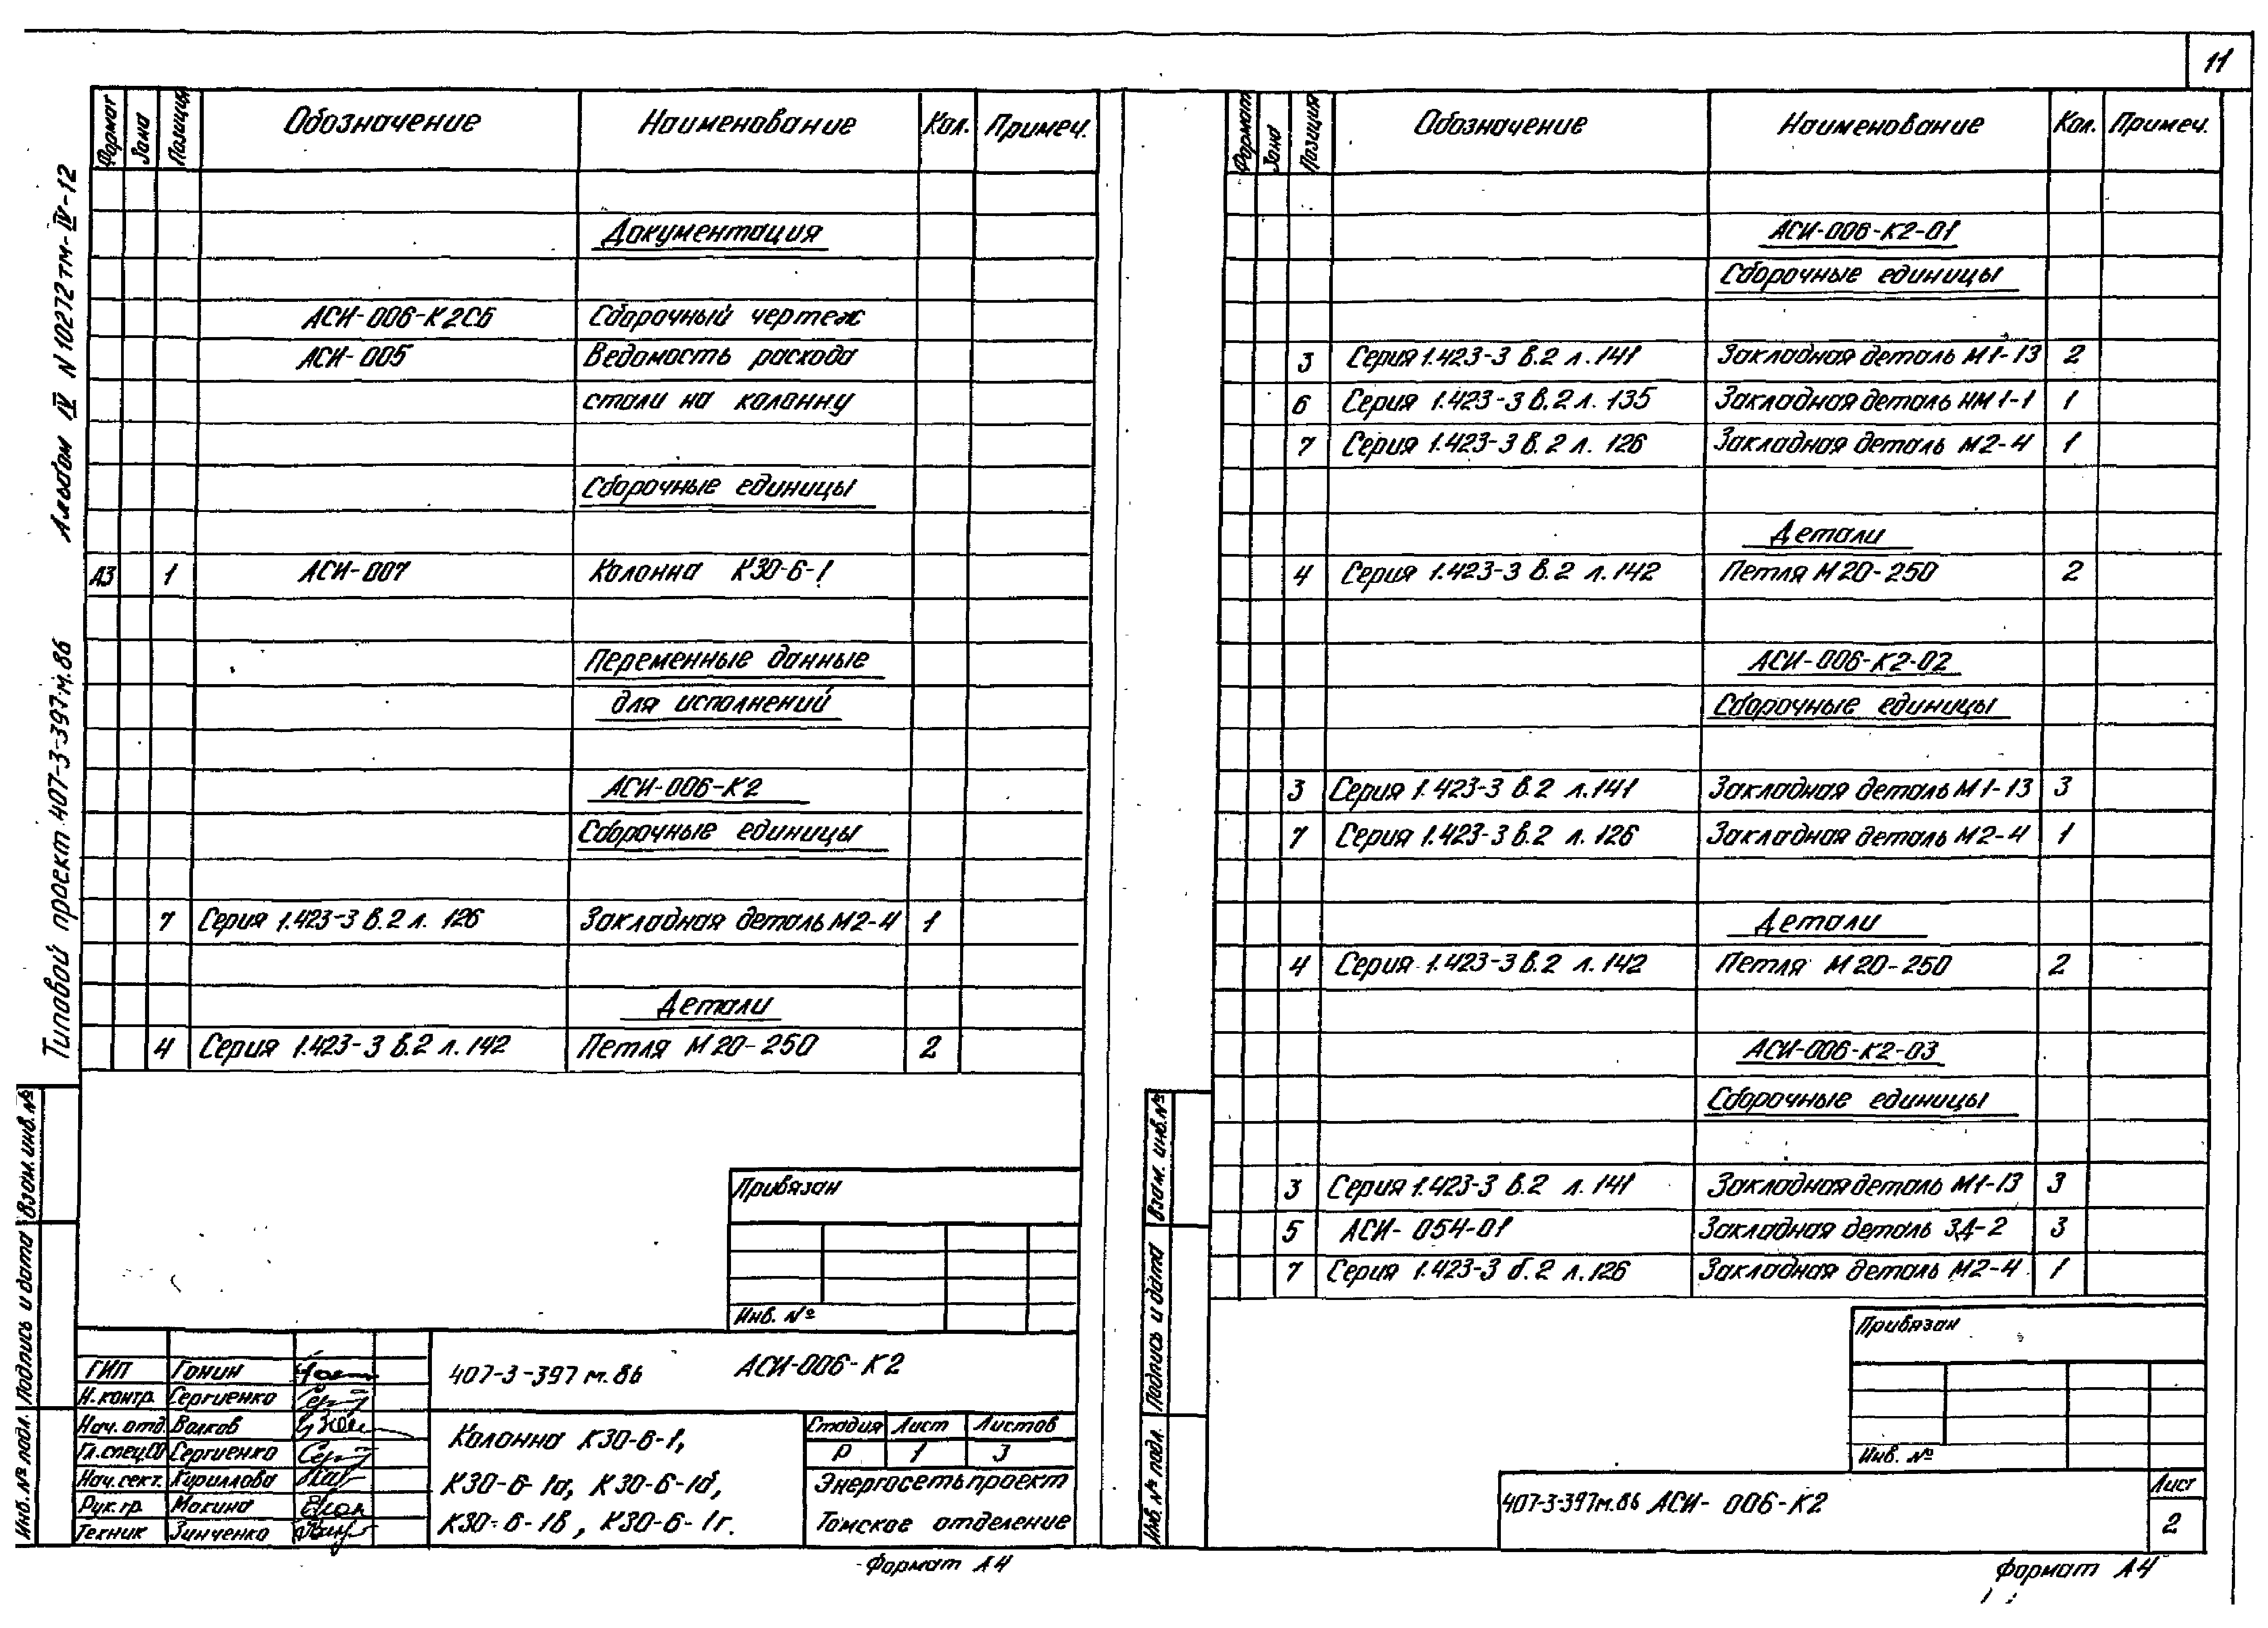 11
Типовой проект 407-3-397м.86 Альбом IV N 10272тм-IV-12
Формат Зона Позиция Обозначение Наименование Кол. Примеч.
Документация
АСИ-006-К2СБ Сборочный чертеж
АСИ-005 Ведомость расхода
стали на колонну
Сборочные единицы
А3 1 АСИ-007 Колонна К30-6-1
Переменные данные
для исполнений
АСИ-006-К2
Сборочные единицы
7 Серия 1.423-3 в.2 л. 126 Закладная деталь М2-4 1
Детали
4 Серия 1.423-3 в.2 л.142 Петля М20-250 2
Привязан
Инв. №
Взам. инв. №
Подпись и дата
Инв. № подл.
ГИП Гонин
Н.контр. Сергиенко
Нач. отд. Волков
Гл.спец.СО Сергиенко
Нач.сект. Кириллова
Рук.гр. Мокина
Техник Зинченко
407-3-397м.86 АСИ-006-К2
Колонна К30-6-1,
К30-6-1а, К30-6-1б,
К30-6-1в, К30-6-1г.
Стадия Лист Листов
Р 1 3
Энергосетьпроект
Томское отделение
Формат А4
Формат Зона Позиция Обозначение Наименование Кол. Примеч.
АСИ-006-К2-01
Сборочные единицы
3 Серия 1.423-3 в.2 л.141 Закладная деталь М1-13 2
6 Серия 1.423-3 в.2 л. 135 Закладная деталь НМ1-1 1
7 Серия 1.423-3 в.2 л. 126 Закладная деталь М2-4 1
Детали
4 Серия 1.423-3 в.2 л.142 Петля М20-250 2
АСИ-006-К2-02
Сборочные единицы
3 Серия 1.423-3 в.2 л.141 Закладная деталь М1-13 3
7 Серия 1.423-3 в.2 л.126 Закладная деталь М2-4 1
Детали
4 Серия 1.423-3 в.2 л.142 Петля М20-250 2
АСИ-006-К2-03
Сборочные единицы
3 Серия 1.423-3 в.2 л.141 Закладная деталь М1-13 3
5 АСИ-054-01 Закладная деталь ЗД-2 3
7 Серия 1.423-3 б.2 л.126 Закладная деталь М2-4 1
Привязан
Инв. №
Взам. инв.№
Подпись и дата
Инв. № подл.
407-3-397м.86 АСИ-006-К2
Лист
2
Формат А4